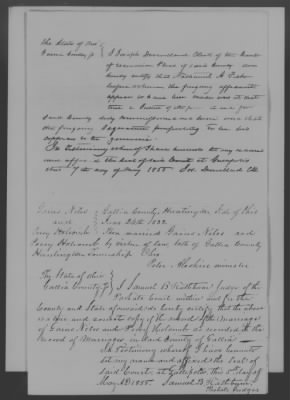 The State of Ohio
Gallia County } I Joseph Drummond Clerk of the Court
of Common Pleas of said County do
hereby certify that Nathaniel A
before whom the foregoing affidavit
appear to have been made was at that
time a Justice of the peace in and for
said County duly commissioned and sworn and that
the foregoing Signature purporting to be his
appears to be genuine
In testimony whereof I have hereunto set my name
and affixed the seal of said Court at Gallipolis
this day of May 1855 Jos. Drummond Clk
Gaius Niles
and
Percy Holcomb
Huntington Township
Gallia County, Huntington Tp of Ohio
June 24th 1832
then married Gaius Niles and
Percy Holcomb by virtue of law both of Gallia County
Ohio
Peter Aleshire minister
The State of Ohio }
Gallia County } I Samuel B Rathburn Judge of the
Probate Court within and for the
County and State aforesaid do hereby certify that the above
is a true and correct copy of the record of the marriage
of Gaius Niles and Percy Holcomb as recorded in the
record of Marriages in said County of Gallia
In testimony whereof I have hereunto
set my name and affixed the Seal of
said Court at Gallipolis, this day of
May AD 1855. Samuel B Rathburn
Probate Judge